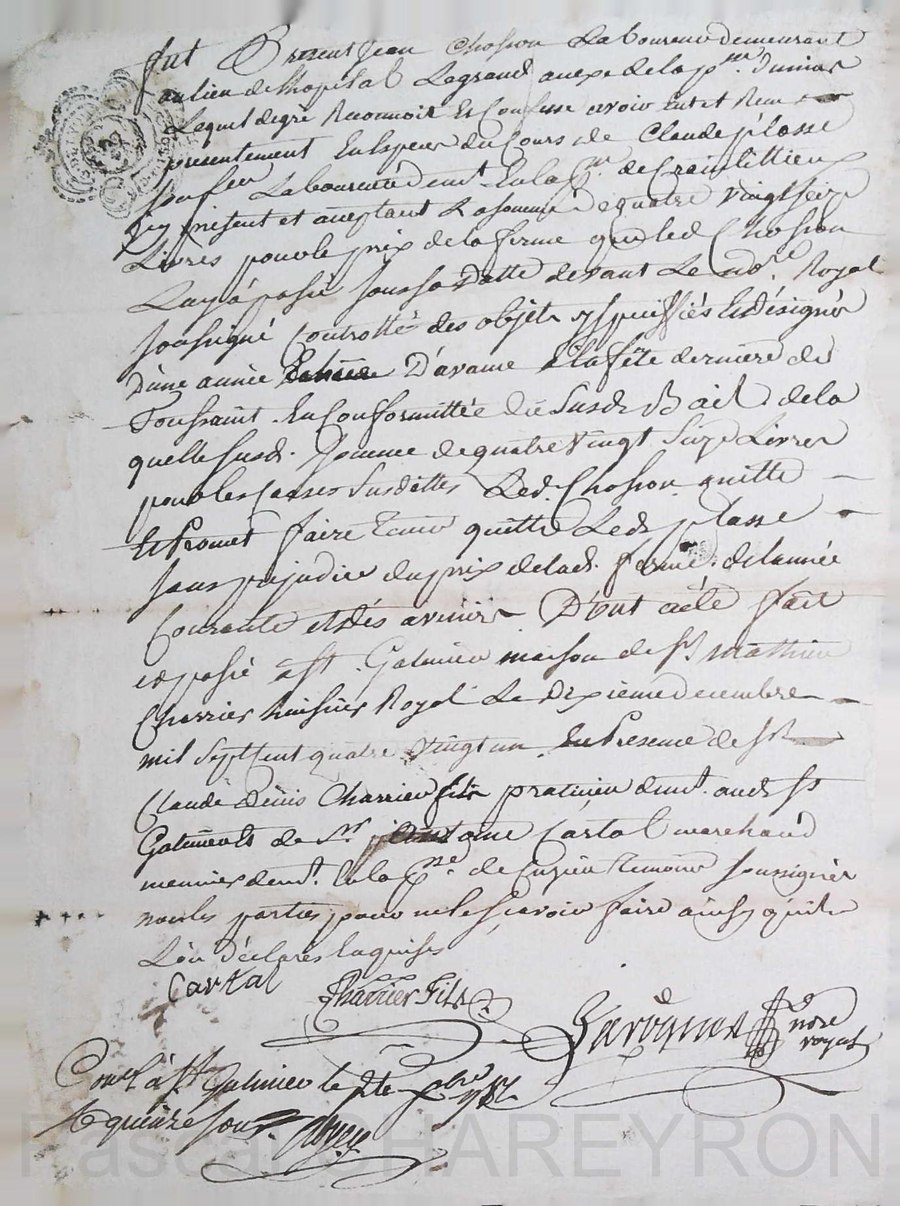 fut Present Jean Chosson Laboureur demeurant
au lieu de Lhopital Legrand anexe de la psse. dunias
Lequel de gré Reconnoit Et Confesse avoir Eut et Reçu
presentement En Espece du Cours de Claude plasse
Laboureur demt. En la psse. de Craintillieux
icy présent et aceptant La somme de quatre vingt seize
Livres pour le prix de la ferme que led Chosson
Luy à passé sous sa Datte devant Le nore. Royal
soussigné Controllé des objets y spécifiés Et désignés
d'une année D'avance à la fête dernière de
Toussaint. En Conformittée du Susd. Bail. de la
quelle susd. somme de quatre vingt Seize Livres
pour les Causes Susdittes Led. Chosson quitte
Et Promet faire tenir quitte Led. plasse
sans prejudice du prix de lad. ferme. de lannée
Courante et dés avenir D'ont acte fait
et passé à St. Galmier maison de Sr. mathieu
Charrier huissier Royal Le Dixieme decembre
mil Sept Cent quatre vingt un En Presence de Sr
Claude Denis Charrier fils praticien demt. aud. St
Galmier et de Sr. antoine Cartal marchand
meunier demt. En la psse. de Cuzieu temoins soussignés
non les parties pour ne le sçavoir faire ainsy qu'ils
L'on déclarés Enquises
Cartal Charrier Fils nore
royal
Conlé à St Galmier le Xbre 1781
quinze sous
Pascal CHAREYRON